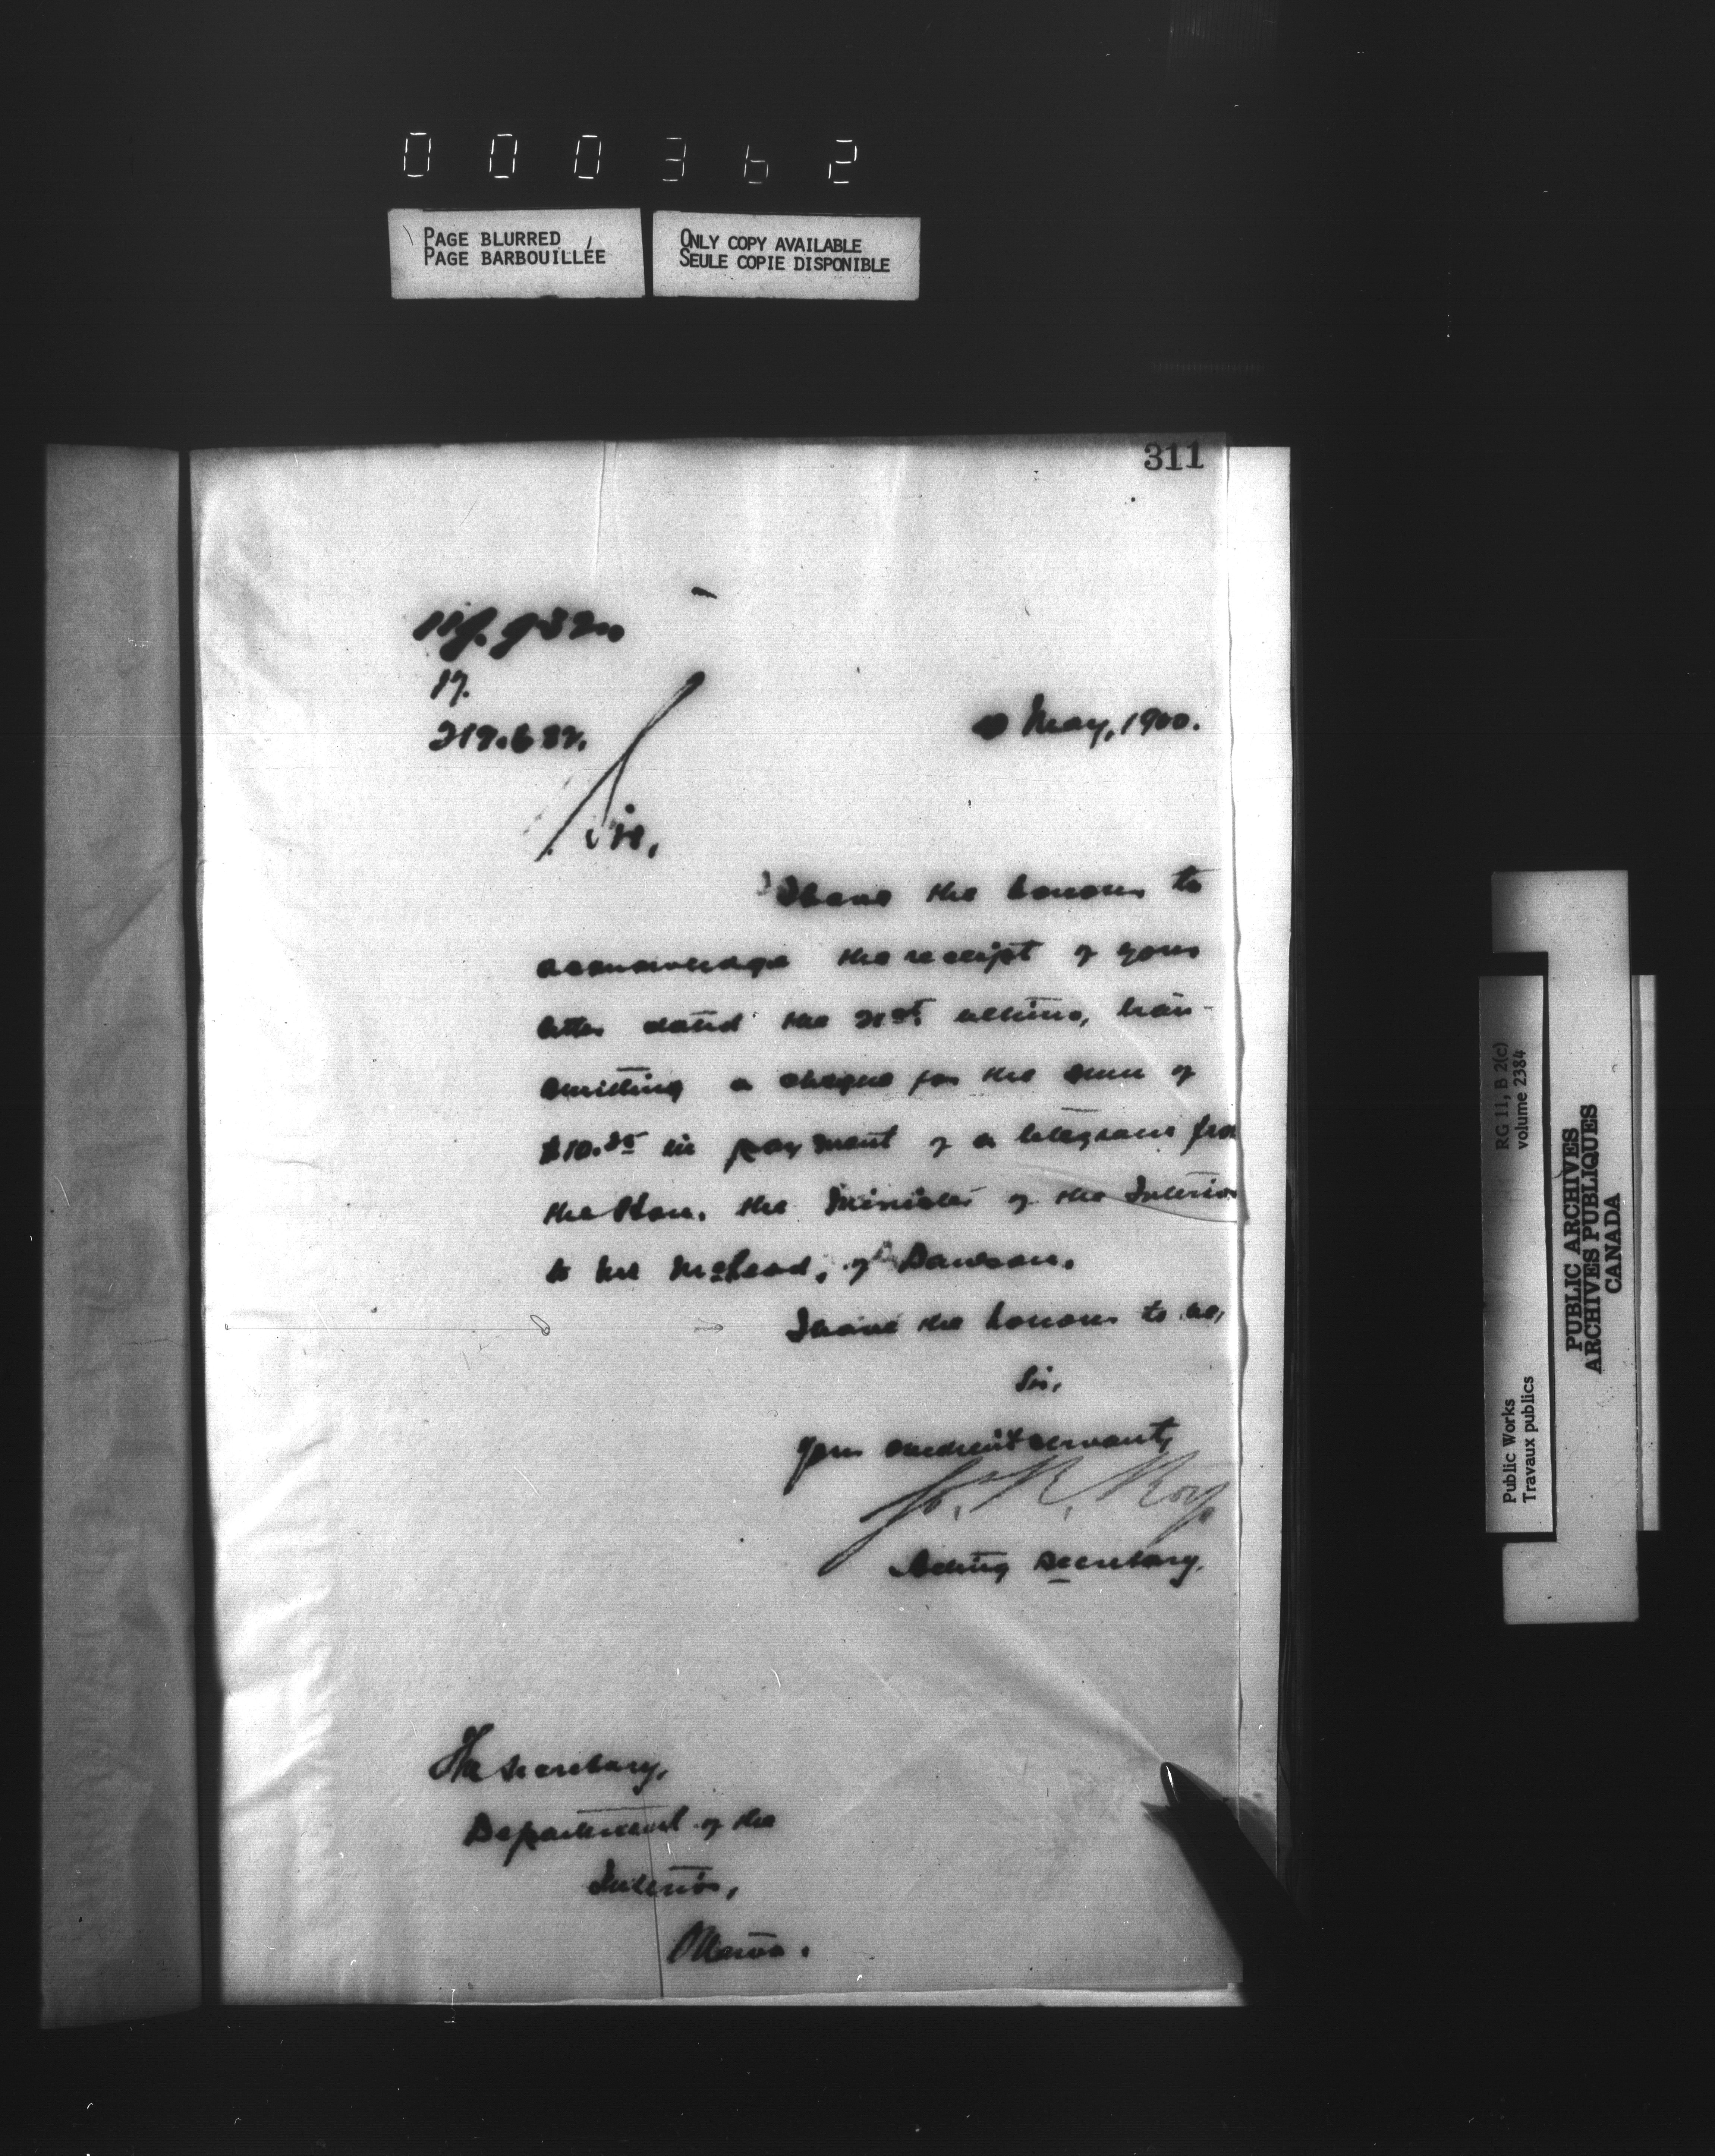 000362
PAGE BLURRED
PAGE BARBOUILLÉE
ONLY COPY AVAILABLE
SEULE COPIE DISPONIBLE
311
17.
May, 1900.
Sir,
I have the honour to
acknowledge the receipt of your
letter dated the 21st ultimo, tran-
smitting a cheque for the sum of
$10.25 in payment of a telegram from
the Hon. the Minister of the Interior
to Mr McLeod, of Dawson.
I have the honour to be,
Sir,
Your obedient servant,
Jos. R. Roy
Acting Secretary.
The Secretary,
Department of the
Interior,
Ottawa.
RG 11, B 2(c)
volume 2384
Public Works
Travaux publics
PUBLIC ARCHIVES
ARCHIVES PUBLIQUES
CANADA